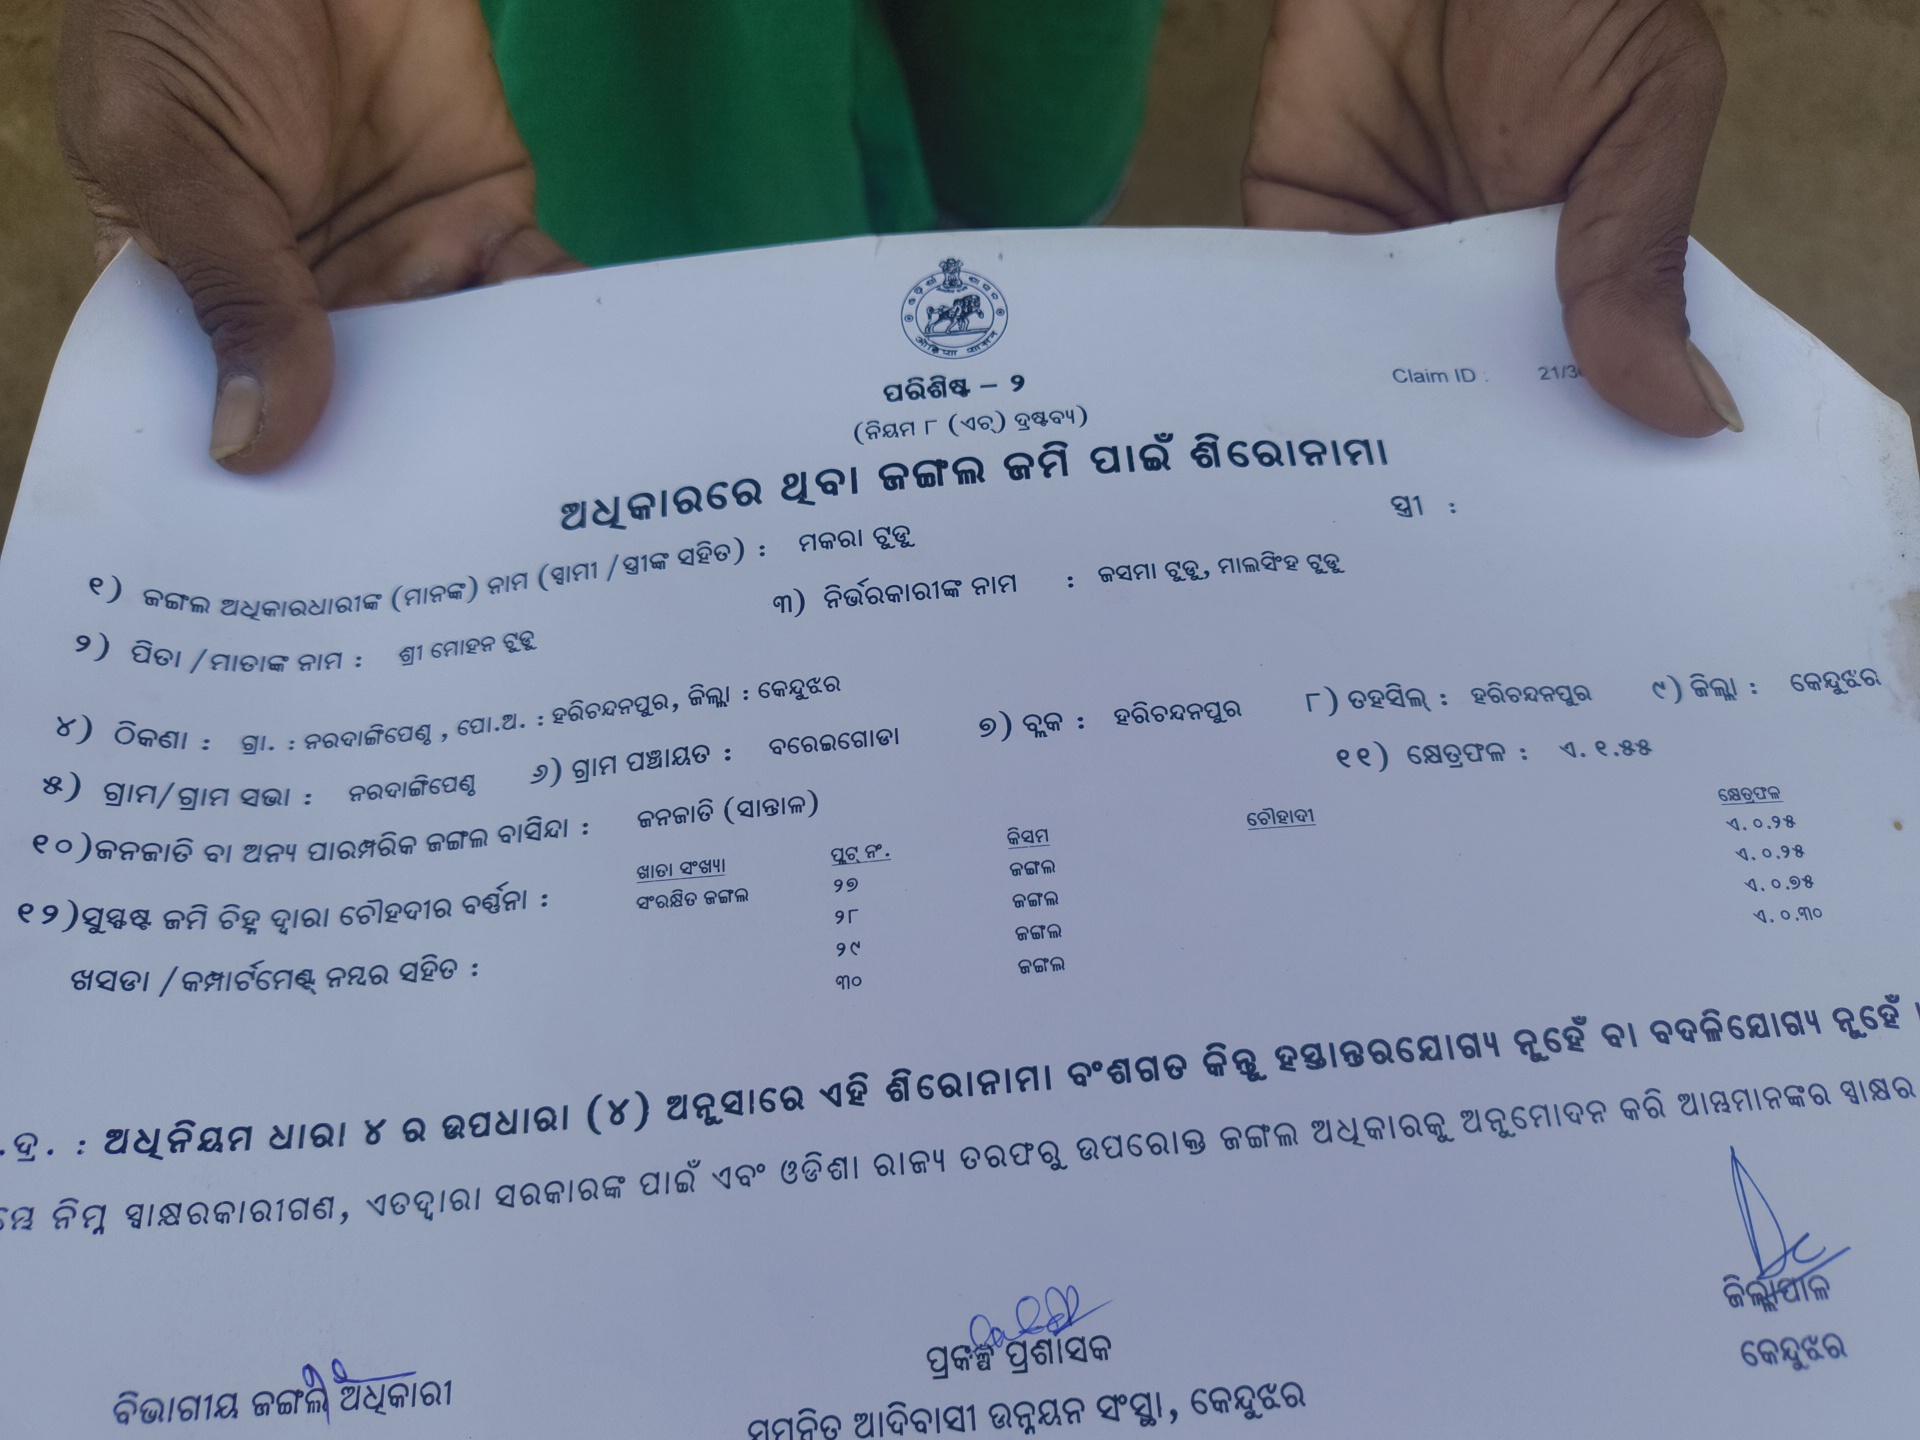 ପରିଶିଷ୍ଟ – ୨
Claim ID : 21/3
(ନିୟମ ୮ (ଏଚ୍) ଦ୍ରଷ୍ଟବ୍ୟ)
ଅଧିକାରରେ ଥିବା ଜଙ୍ଗଲ ଜମି ପାଇଁ ଶିରୋନାମା
୧) ଜଙ୍ଗଲ ଅଧିକାରଧାରୀଙ୍କ (ମାନଙ୍କ) ନାମ (ସ୍ୱାମୀ /ସ୍ତ୍ରୀଙ୍କ ସହିତ) : ମକରା ଟୁଡୁ ସ୍ତ୍ରୀ :
୨) ପିତା /ମାତାଙ୍କ ନାମ : ଶ୍ରୀ ମୋହନ ଟୁଡୁ ୩) ନିର୍ଭରକାରୀଙ୍କ ନାମ : ଜସମା ଟୁଡୁ, ମାଲସିଂହ ଟୁଡୁ
୪) ଠିକଣା : ଗ୍ରା. : ନରଦାଙ୍ଗିପେଣ୍ଠ , ପୋ.ଅ. : ହରିଚନ୍ଦନପୁର, ଜିଲ୍ଲା : କେନ୍ଦୁଝର
୫) ଗ୍ରାମ/ଗ୍ରାମ ସଭା : ନରଦାଙ୍ଗିପେଣ୍ଠ ୬) ଗ୍ରାମ ପଞ୍ଚାୟତ : ବରେଇଗୋଡା ୭) ବ୍ଲକ : ହରିଚନ୍ଦନପୁର ୮) ତହସିଲ୍ : ହରିଚନ୍ଦନପୁର ୯) ଜିଲ୍ଲା : କେନ୍ଦୁଝର
୧୦)ଜନଜାତି ବା ଅନ୍ୟ ପାରମ୍ପରିକ ଜଙ୍ଗଲ ବାସିନ୍ଦା : ଜନଜାତି (ସାନ୍ତାଳ) ୧୧) କ୍ଷେତ୍ରଫଳ : ଏ. ୧.୫୫
୧୨)ସୁସ୍ପଷ୍ଟ ଜମି ଚିହ୍ନ ଦ୍ୱାରା ଚୌହଦୀର ବର୍ଣ୍ଣନା :
ଖସଡା /କମ୍ପାର୍ଟମେଣ୍ଟ୍ ନମ୍ବର ସହିତ :
ଖାତା ସଂଖ୍ୟା ପ୍ଲଟ୍ ନଂ. କିସମ ଚୌହାଦୀ କ୍ଷେତ୍ରଫଳ
ସଂରକ୍ଷିତ ଜଙ୍ଗଲ ୨୭ ଜଙ୍ଗଲ ଏ. ୦.୨୫
୨୮ ଜଙ୍ଗଲ ଏ. ୦.୨୫
୨୯ ଜଙ୍ଗଲ ଏ. ୦.୭୫
୩୦ ଜଙ୍ଗଲ ଏ. ୦.୩୦
.ଦ୍ର. : ଅଧିନିୟମ ଧାରା ୪ ର ଉପଧାରା (୪) ଅନୁସାରେ ଏହି ଶିରୋନାମା ବଂଶଗତ କିନ୍ତୁ ହସ୍ତାନ୍ତରଯୋଗ୍ୟ ନୁହେଁ ବା ବଦଳିଯୋଗ୍ୟ ନୁହେଁ ।
ନିମ୍ନ ସ୍ୱାକ୍ଷରକାରୀଗଣ, ଏତଦ୍ୱାରା ସରକାରଙ୍କ ପାଇଁ ଏବଂ ଓଡିଶା ରାଜ୍ୟ ତରଫରୁ ଉପରୋକ୍ତ ଜଙ୍ଗଲ ଅଧିକାରକୁ ଅନୁମୋଦନ କରି ଆମ୍ଭମାନଙ୍କର ସ୍ୱାକ୍ଷର
ଜିଲ୍ଲାପାଳ
କେନ୍ଦୁଝର
ପ୍ରକଳ୍ପ ପ୍ରଶାସକ
ସମନ୍ୱିତ ଆଦିବାସୀ ଉନ୍ନୟନ ସଂସ୍ଥା, କେନ୍ଦୁଝର
ବିଭାଗୀୟ ଜଙ୍ଗଲ ଅଧିକାରୀ